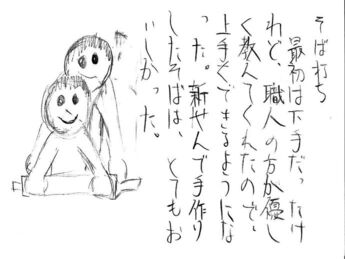 そば打ち
最初は下手だったけ
れど、職人の方が優し
く教えてくれたので、
上手くできるようにな
った。新せんで手作り
したそばは、とてもお
いしかった。